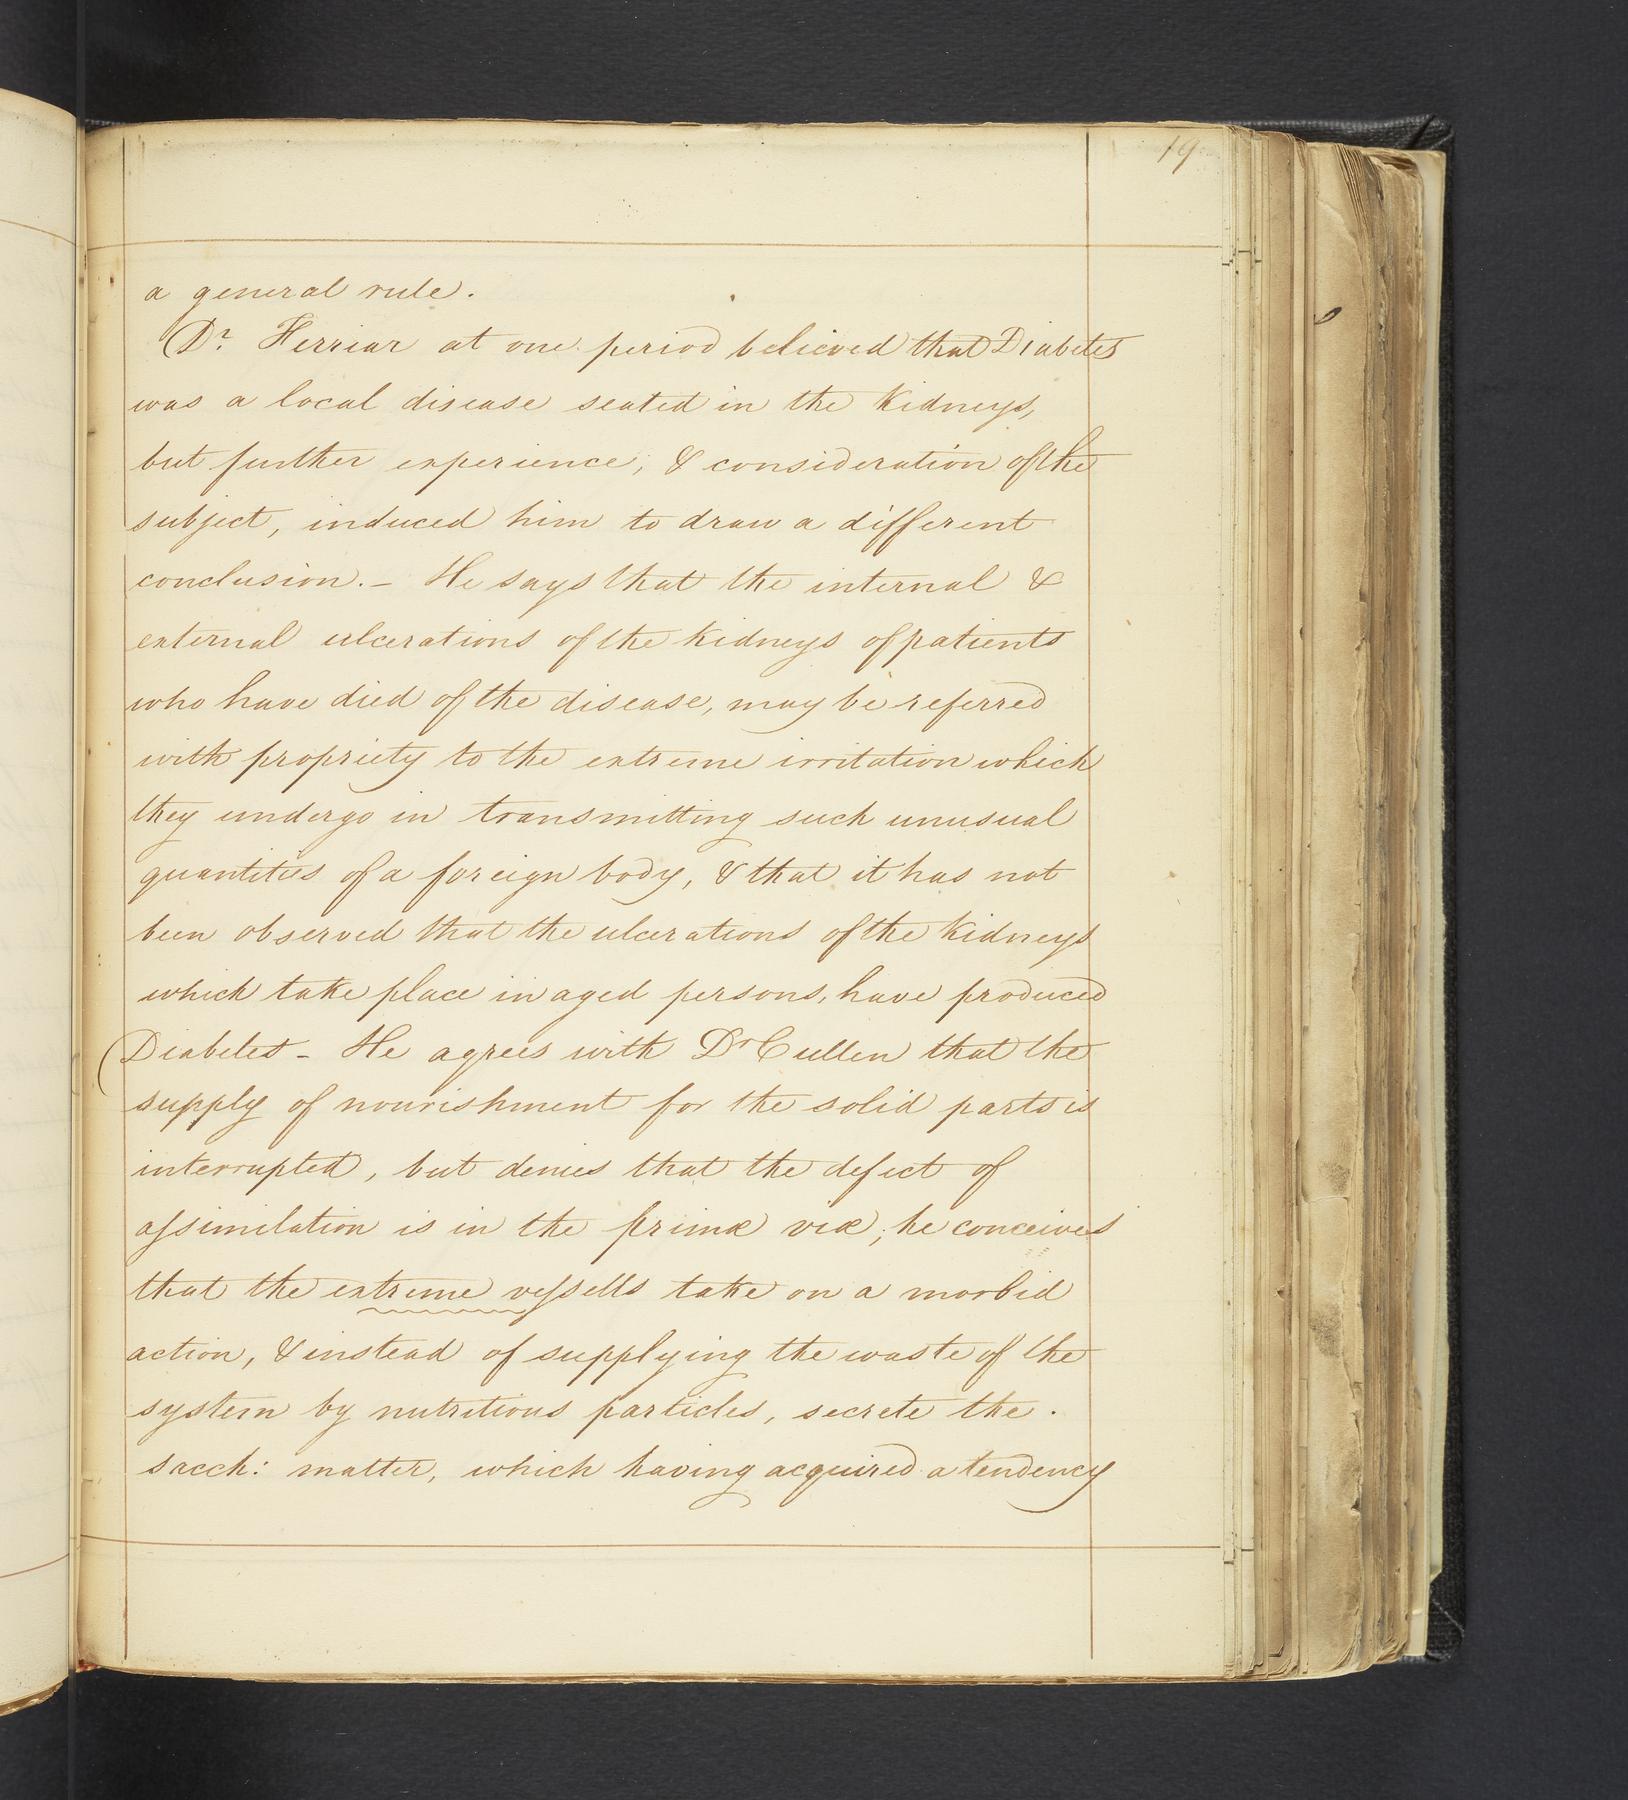 19
a general rule.
Dr. Ferriar at one period believed that Diabetes
was a local disease seated in the Kidneys,
but further experience, & consideration of the
subject, induced him to draw a different
conclusion. – He says that the internal &
external ulcerations of the Kidneys of patients
who have died of the disease, may be referred
with propriety to the extreme irritation which
they undergo in transmitting such unusual
quantities of a foreign body, & that it has not
been observed that the ulcerations of the Kidneys
which take place in aged persons, have produced
Diabetes – He agrees with Dr Cullen that the
supply of nourishment for the solid parts is
interrupted, but denies that the defect of
assimilation is in the primæ viæ; he conceives
that the extreme vessells take on a morbid
action, & instead of supplying the waste of the
system by nutritious particles, secrete the.
sacch: matter, which having acquired a tendency